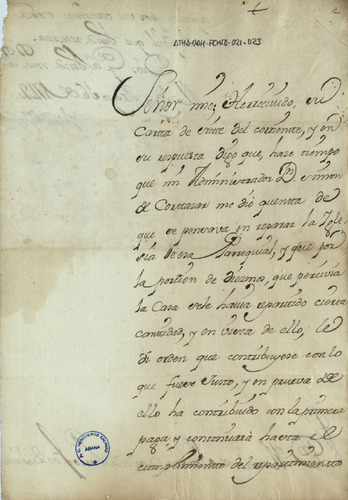 ATHA-DAH-FCHTB-021-023
Señor mio, He recivido, su
Carta de siete del corriente, y en
su respuesta digo que, haze tiempo
que mi Administrador Dn. Simon
de Cortazar me dio quenta de
que se pensava en reparar la Igle
sia de esa Parroquial, y que por
la porcion de Diezmos, que percivia
la Casa se le havia repartido cierta
cantidad, y en vista de ello, le
di orden que contribuyese con lo
que fuese Justo, y en prueva de
ello ha contribuido con la primera
paga y continuará hasta el
cumplimiento del repartimiento